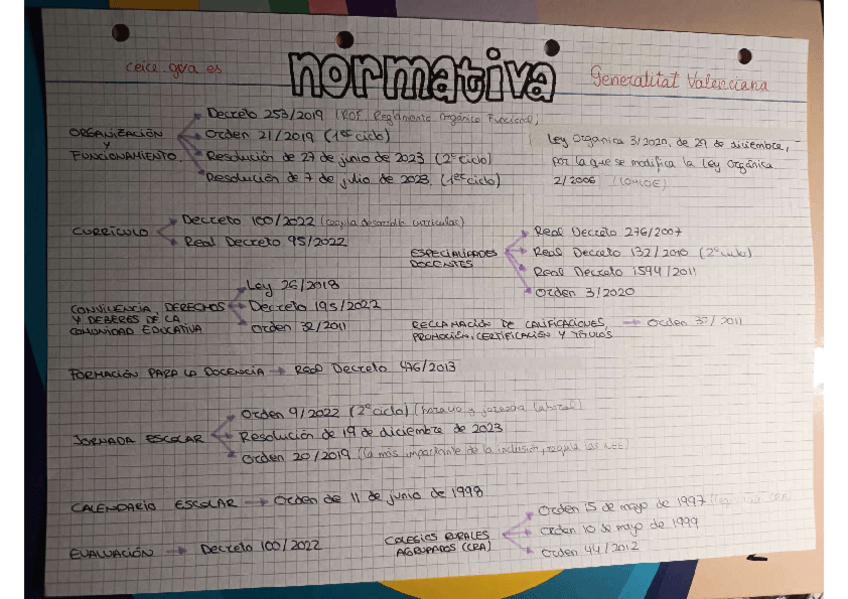 ceice.gva.es
normativa
Generalitat Valenciana
ORGANIZACIÓN Y FUNCIONAMIENTO
Decreto 253/2019 (ROF, Reglamento Orgánico Funcional)
Orden 21/2019 (1er ciclo)
Resolución de 27 de junio de 2023 (2º ciclo)
Resolución de 7 de julio de 2023 (1er ciclo)
Ley Orgánica 3/2020, de 29 de diciembre,
por la que se modifica la Ley Orgánica
2/2006 (LOMLOE)
CURRÍCULO
Decreto 100/2022 (regula desarrollo curricular)
Real Decreto 95/2022
ESPECIALIDADES
DOCENTES
Real Decreto 276/2007
Real Decreto 132/2010 (2º ciclo)
Real Decreto 1594/2011
Orden 3/2020
CONVIVENCIA, DERECHOS
Y DEBERES DE LA
COMUNIDAD EDUCATIVA
Ley 26/2018
Decreto 195/2022
Orden 32/2011
RECLAMACIÓN DE CALIFICACIONES,
PROMOCIÓN, CERTIFICACIÓN Y TÍTULOS
Orden 32/2011
FORMACIÓN PARA LA DOCENCIA → Real Decreto 476/2013
JORNADA ESCOLAR
Orden 9/2022 (2º ciclo) (horario y jornada laboral)
Resolución de 19 de diciembre de 2023
Orden 20/2019 (la más importante de la inclusión, regula las NEE)
CALENDARIO ESCOLAR → Orden de 11 de junio de 1998
EVALUACIÓN → Decreto 100/2022
COLEGIOS RURALES
AGRUPADOS (CRA)
Orden 15 de mayo de 1997
Orden 10 de mayo de 1999
Orden 44/2012